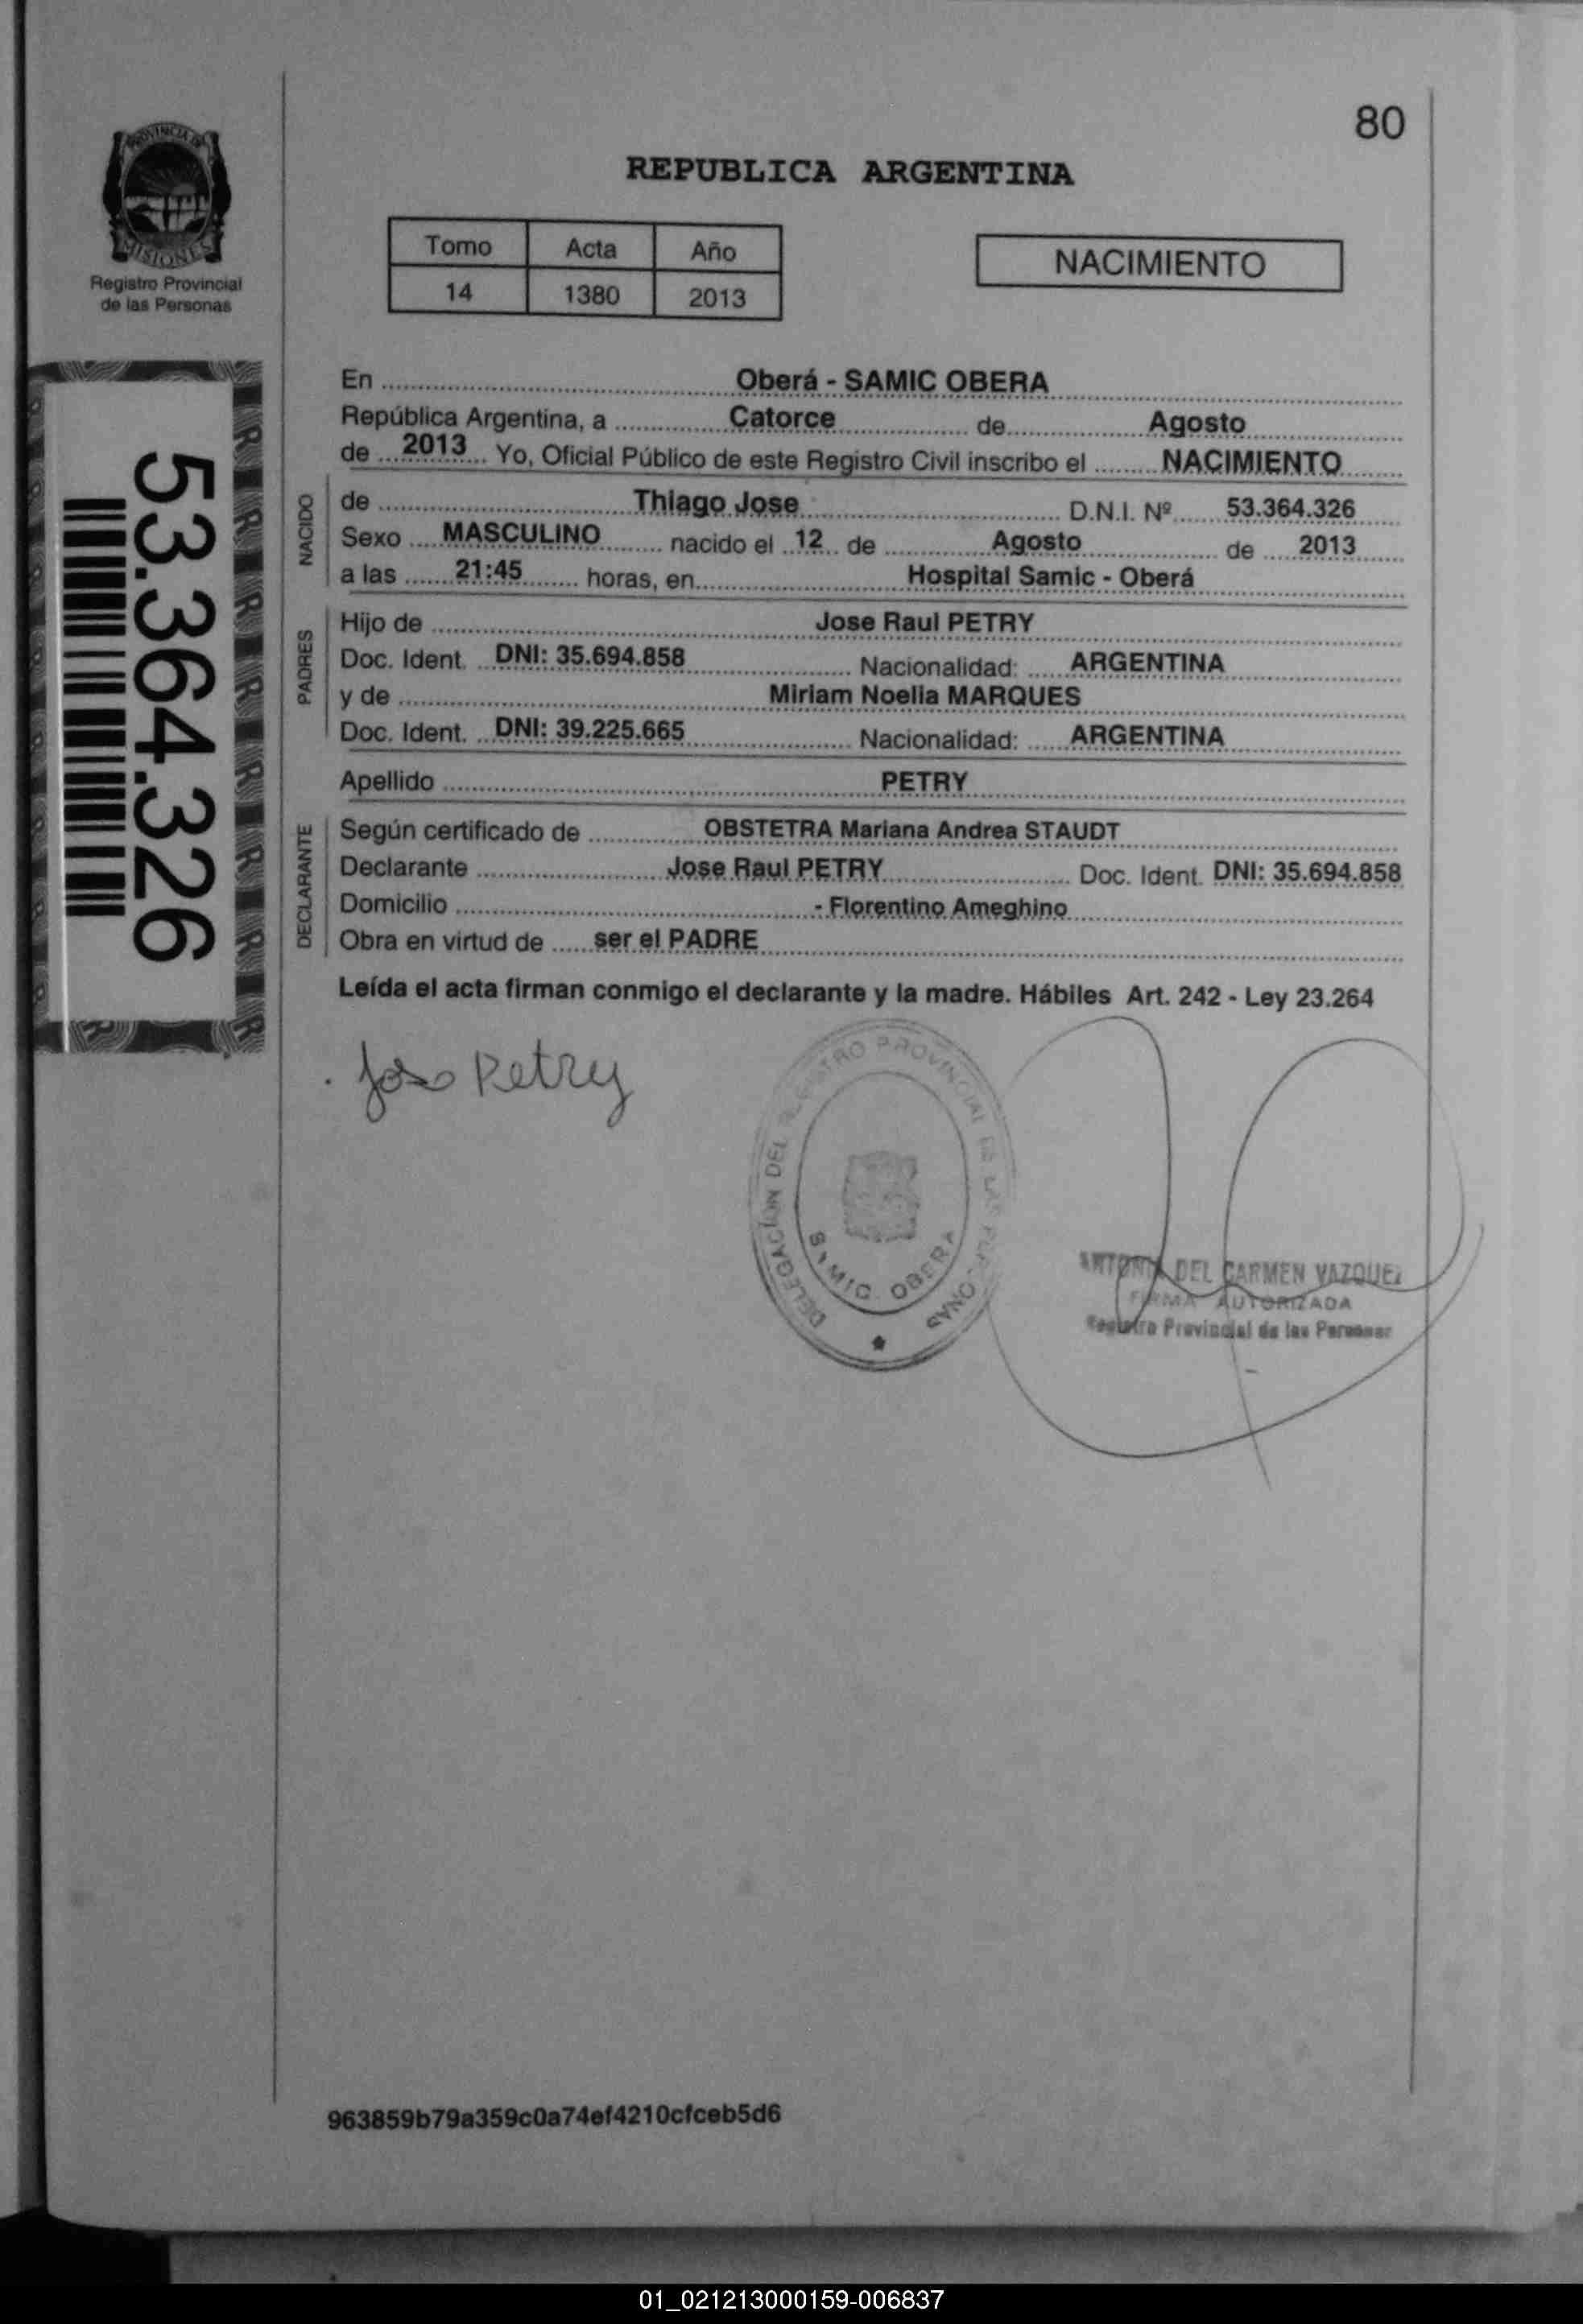 80
PROVINCIA DE
MISIONES
Registro Provincial
de las Personas
REPUBLICA ARGENTINA
Tomo Acta Año
14 1380 2013
NACIMIENTO
53.364.326
En Oberá - SAMIC OBERA
República Argentina, a Catorce de Agosto
de 2013 Yo, Oficial Público de este Registro Civil inscribo el NACIMIENTO
NACIDO
de Thiago Jose D.N.I. Nº 53.364.326
Sexo MASCULINO nacido el 12 de Agosto de 2013
a las 21:45 horas, en Hospital Samic - Oberá
PADRES
Hijo de Jose Raul PETRY
Doc. Ident. DNI: 35.694.858 Nacionalidad: ARGENTINA
y de Miriam Noelia MARQUES
Doc. Ident. DNI: 39.225.665 Nacionalidad: ARGENTINA
Apellido PETRY
DECLARANTE
Según certificado de OBSTETRA Mariana Andrea STAUDT
Declarante Jose Raul PETRY Doc. Ident. DNI: 35.694.858
Domicilio - Florentino Ameghino
Obra en virtud de ser el PADRE
Leída el acta firman conmigo el declarante y la madre. Hábiles Art. 242 - Ley 23.264
Jose Petry
DELEGACION DEL REGISTRO PROVINCIAL DE LAS PERSONAS
SAMIC OBERA
ANTONIA DEL CARMEN VAZQUEZ
FIRMA AUTORIZADA
Registro Provincial de las Personas
963859b79a359c0a74ef4210cfceb5d6
01_021213000159-006837